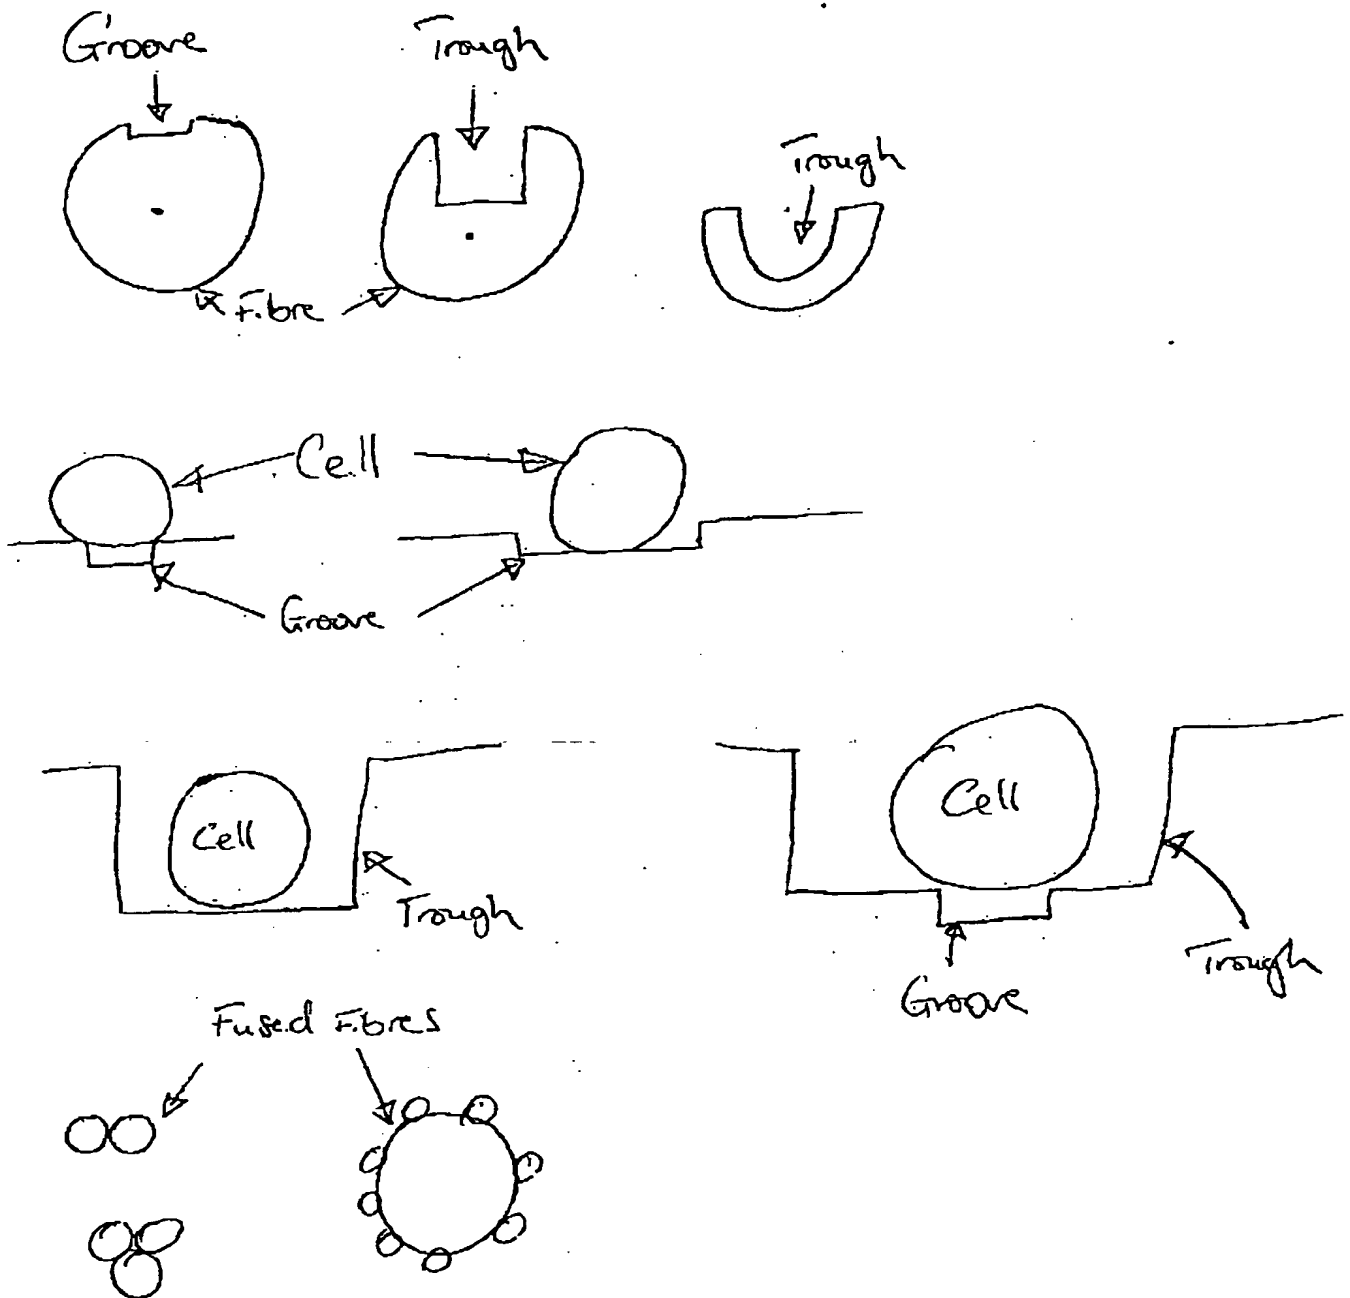 Groove
Trough
Trough
Fibre
Cell
Groove
Cell
Trough
Cell
Groove
Trough
Fused Fibres